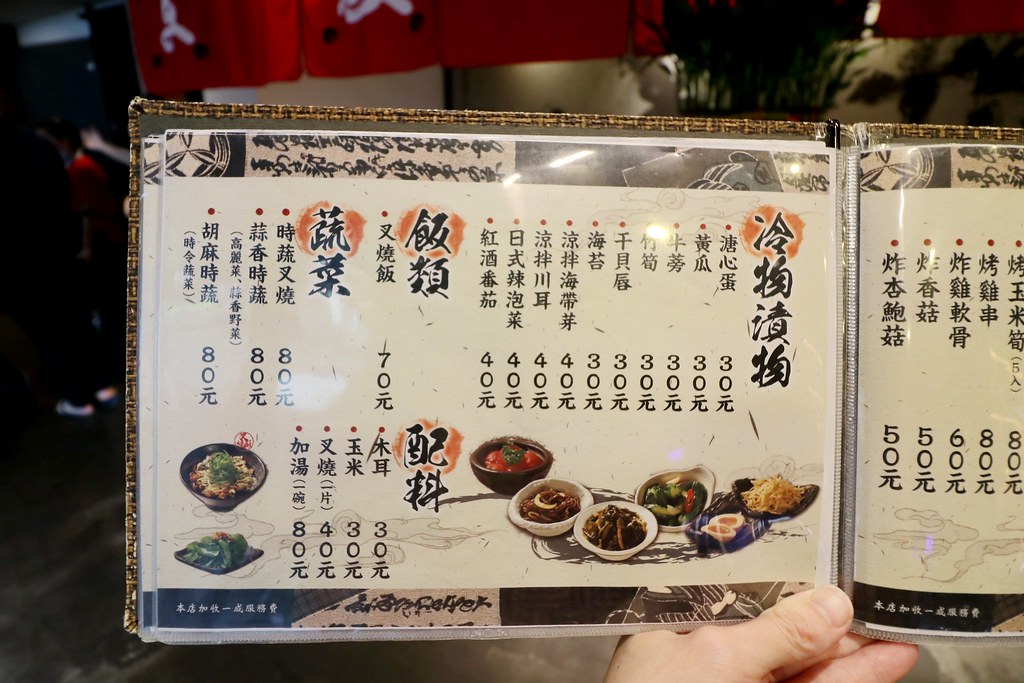 冷物漬物
溏心蛋 30元
黃瓜 30元
牛蒡 30元
竹筍 30元
干貝唇 30元
海苔 30元
涼拌海帶芽 40元
涼拌川耳 40元
日式辣泡菜 40元
紅酒番茄 40元
飯類
叉燒飯 70元
蔬菜
時蔬叉燒 80元
蒜香時蔬 80元
(高麗菜、蒜香野菜)
胡麻時蔬 80元
(時令蔬菜)
配料
木耳 30元
玉米 30元
叉燒(一片) 40元
加湯(一碗) 80元
本店加收一成服務費
烤玉米筍(5入) 80元
烤雞串 80元
炸雞軟骨 60元
炸香菇 50元
炸杏鮑菇 50元
本店加收一成服務費